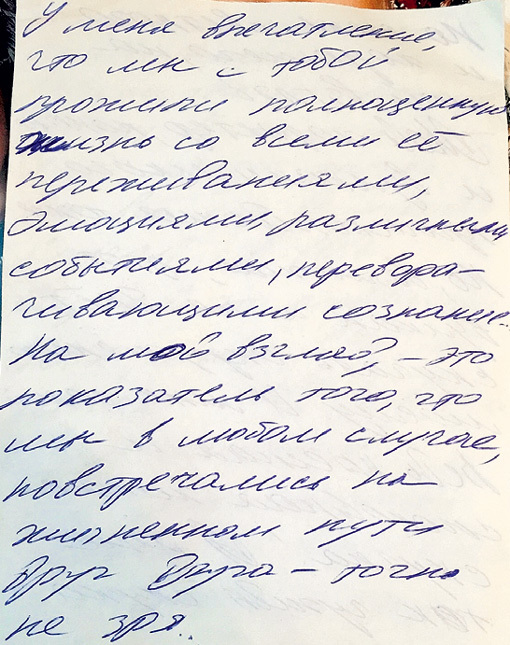 У меня впечатление,
что мы с тобой
прожили полноценную
жизнь со всеми её
переживаниями,
эмоциями, различными
событиями, перевора-
чивающими сознание.
На мой взгляд, - это
показатель того, что
мы в любом случае,
повстречались на
жизненном пути
друг друга - точно
не зря.